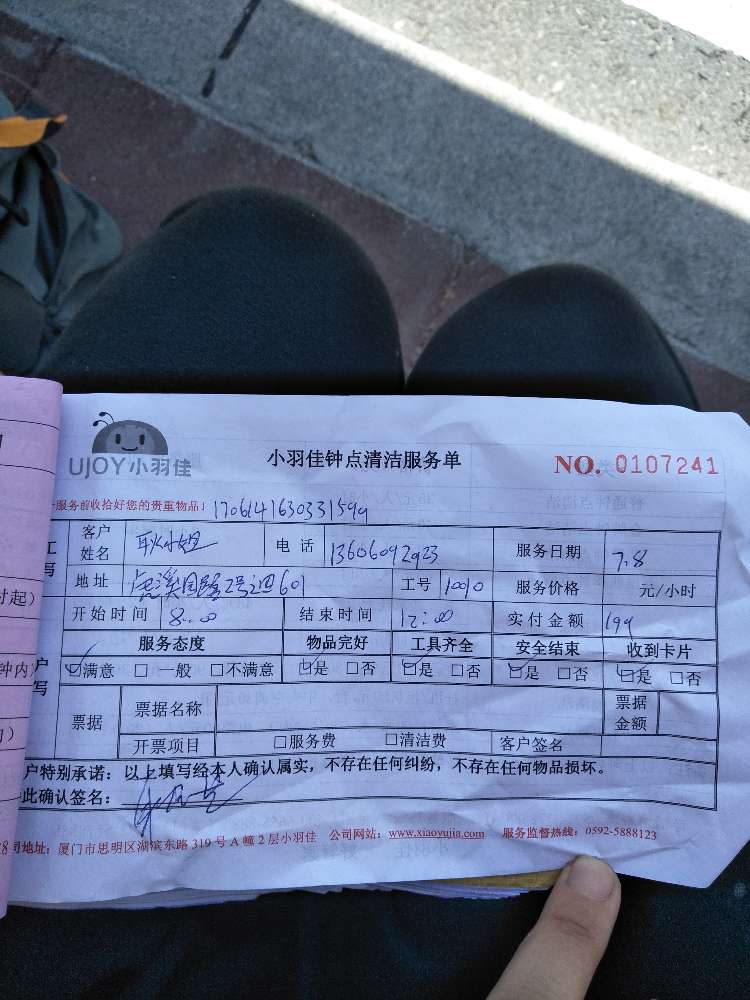 UJOY小羽佳
小羽佳钟点清洁服务单
NO. 0107241
服务前收拾好您的贵重物品!
客户姓名 电话 13606092923 服务日期 7.8
地址 工号 1010 服务价格 元/小时
开始时间 8:00 结束时间 12:00 实付金额 199
服务态度 物品完好 工具齐全 安全结束 收到卡片
☑满意 □一般 □不满意 ☑是 □否 ☑是 □否 ☑是 □否 ☑是 □否
票据 票据名称 票据金额
开票项目 □服务费 □清洁费 客户签名
户特别承诺：以上填写经本人确认属实，不存在任何纠纷，不存在任何物品损坏。
此确认签名：
司地址：厦门市思明区湖滨东路319号A幢2层小羽佳 公司网站：www.xiaoyujia.com 服务监督热线：0592-5888123